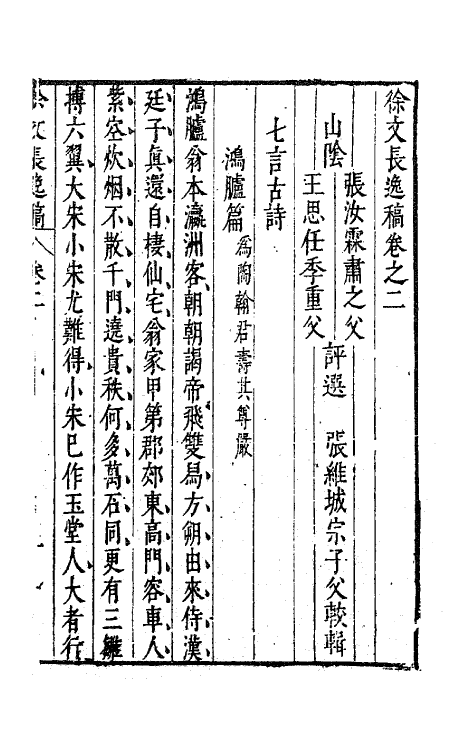 徐文長逸稿卷之二
山陰
張汝霖肅之父
王思任季重父
評選
張維城宗子父較輯
七言古詩
鴻臚篇
爲陶翰君壽其尊嚴
鴻臚翁本瀛洲客朝朝謁帝飛雙舄方朔由來侍漢
廷子眞還自棲仙宅翁家甲第郡郊東高門容車人
紫室炊烟不散千門遶貴秩何多萬石同更有三雛
搏六翼大宋小宋尤難得小宋已作玉堂人大者行
徐文長逸稿
卷二